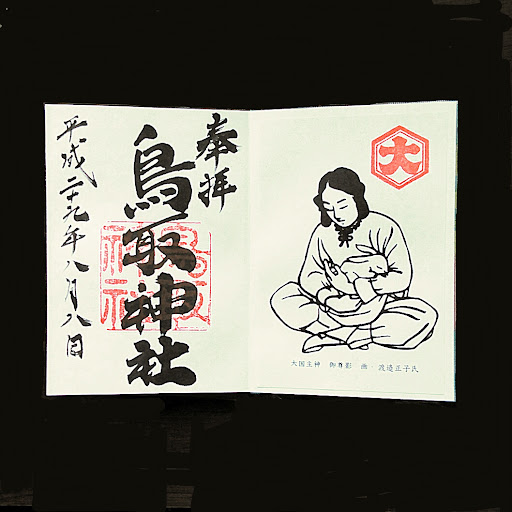 奉拝
鳥取神社
鳥取
神社
平成二十九年八月八日
大
大国主神 御尊影 画 渡邉正子氏